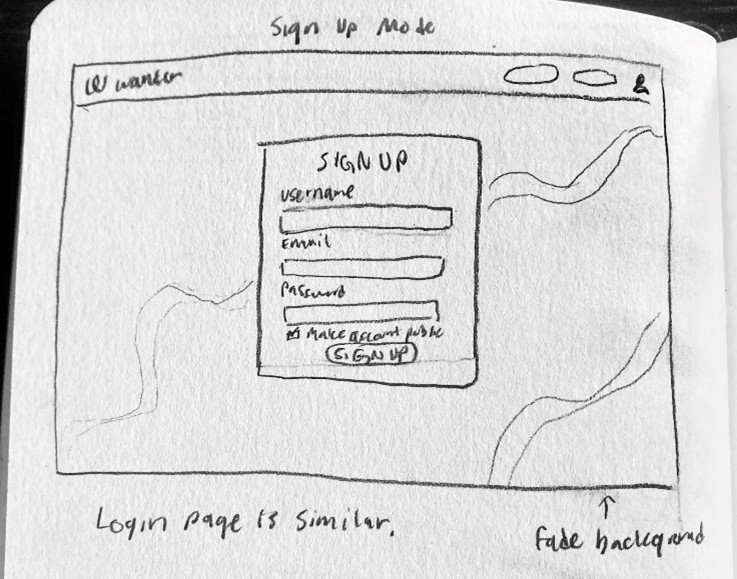 Sign Up Mode
W wanter
SIGN UP
username
Email
Password
Make account public
SIGN UP
Login page is similar.
Fade background